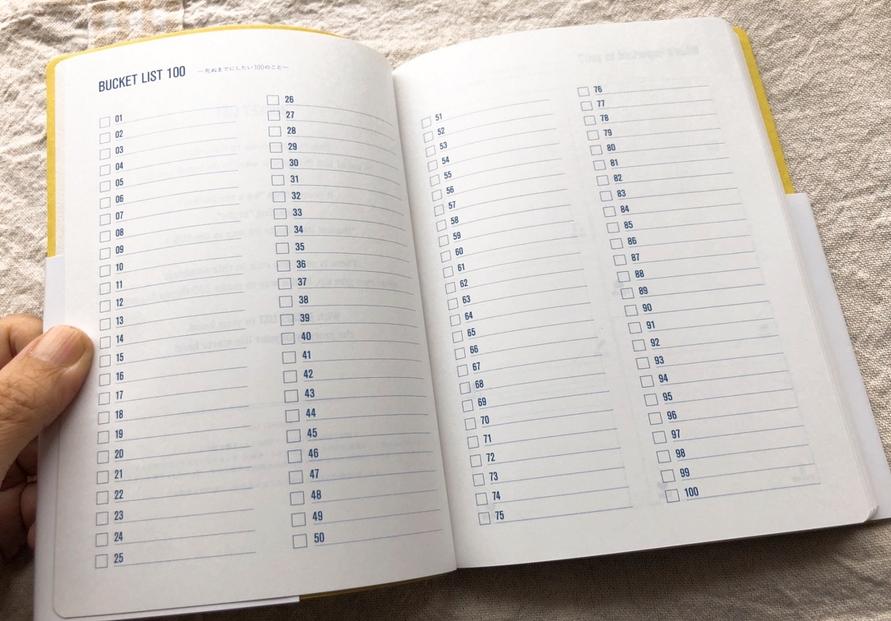 BUCKET LIST 100 —死ぬまでにしたい100のこと—
01
02
03
04
05
06
07
08
09
10
11
12
13
14
15
16
17
18
19
20
21
22
23
24
25
26
27
28
29
30
31
32
33
34
35
36
37
38
39
40
41
42
43
44
45
46
47
48
49
50
51
52
53
54
55
56
57
58
59
60
61
62
63
64
65
66
67
68
69
70
71
72
73
74
75
76
77
78
79
80
81
82
83
84
85
86
87
88
89
90
91
92
93
94
95
96
97
98
99
100